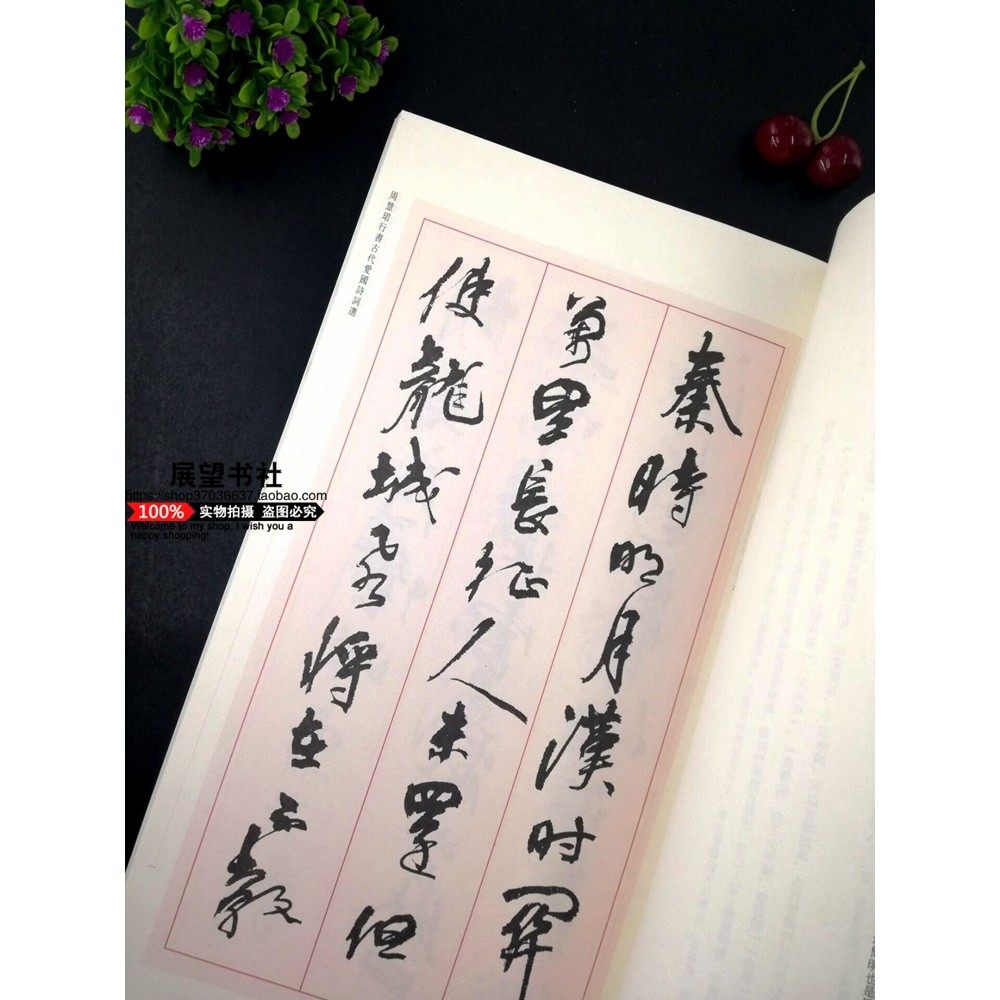 周慧珺行書古代愛國詩詞選
秦時明月漢时關
萬里長征人未還但
使龍城飛將在不教
展望书社
https://shop37036637.taobao.com
100% 实物拍摄 盗图必究
Welcome to my shop, I wish you a
happy shopping!